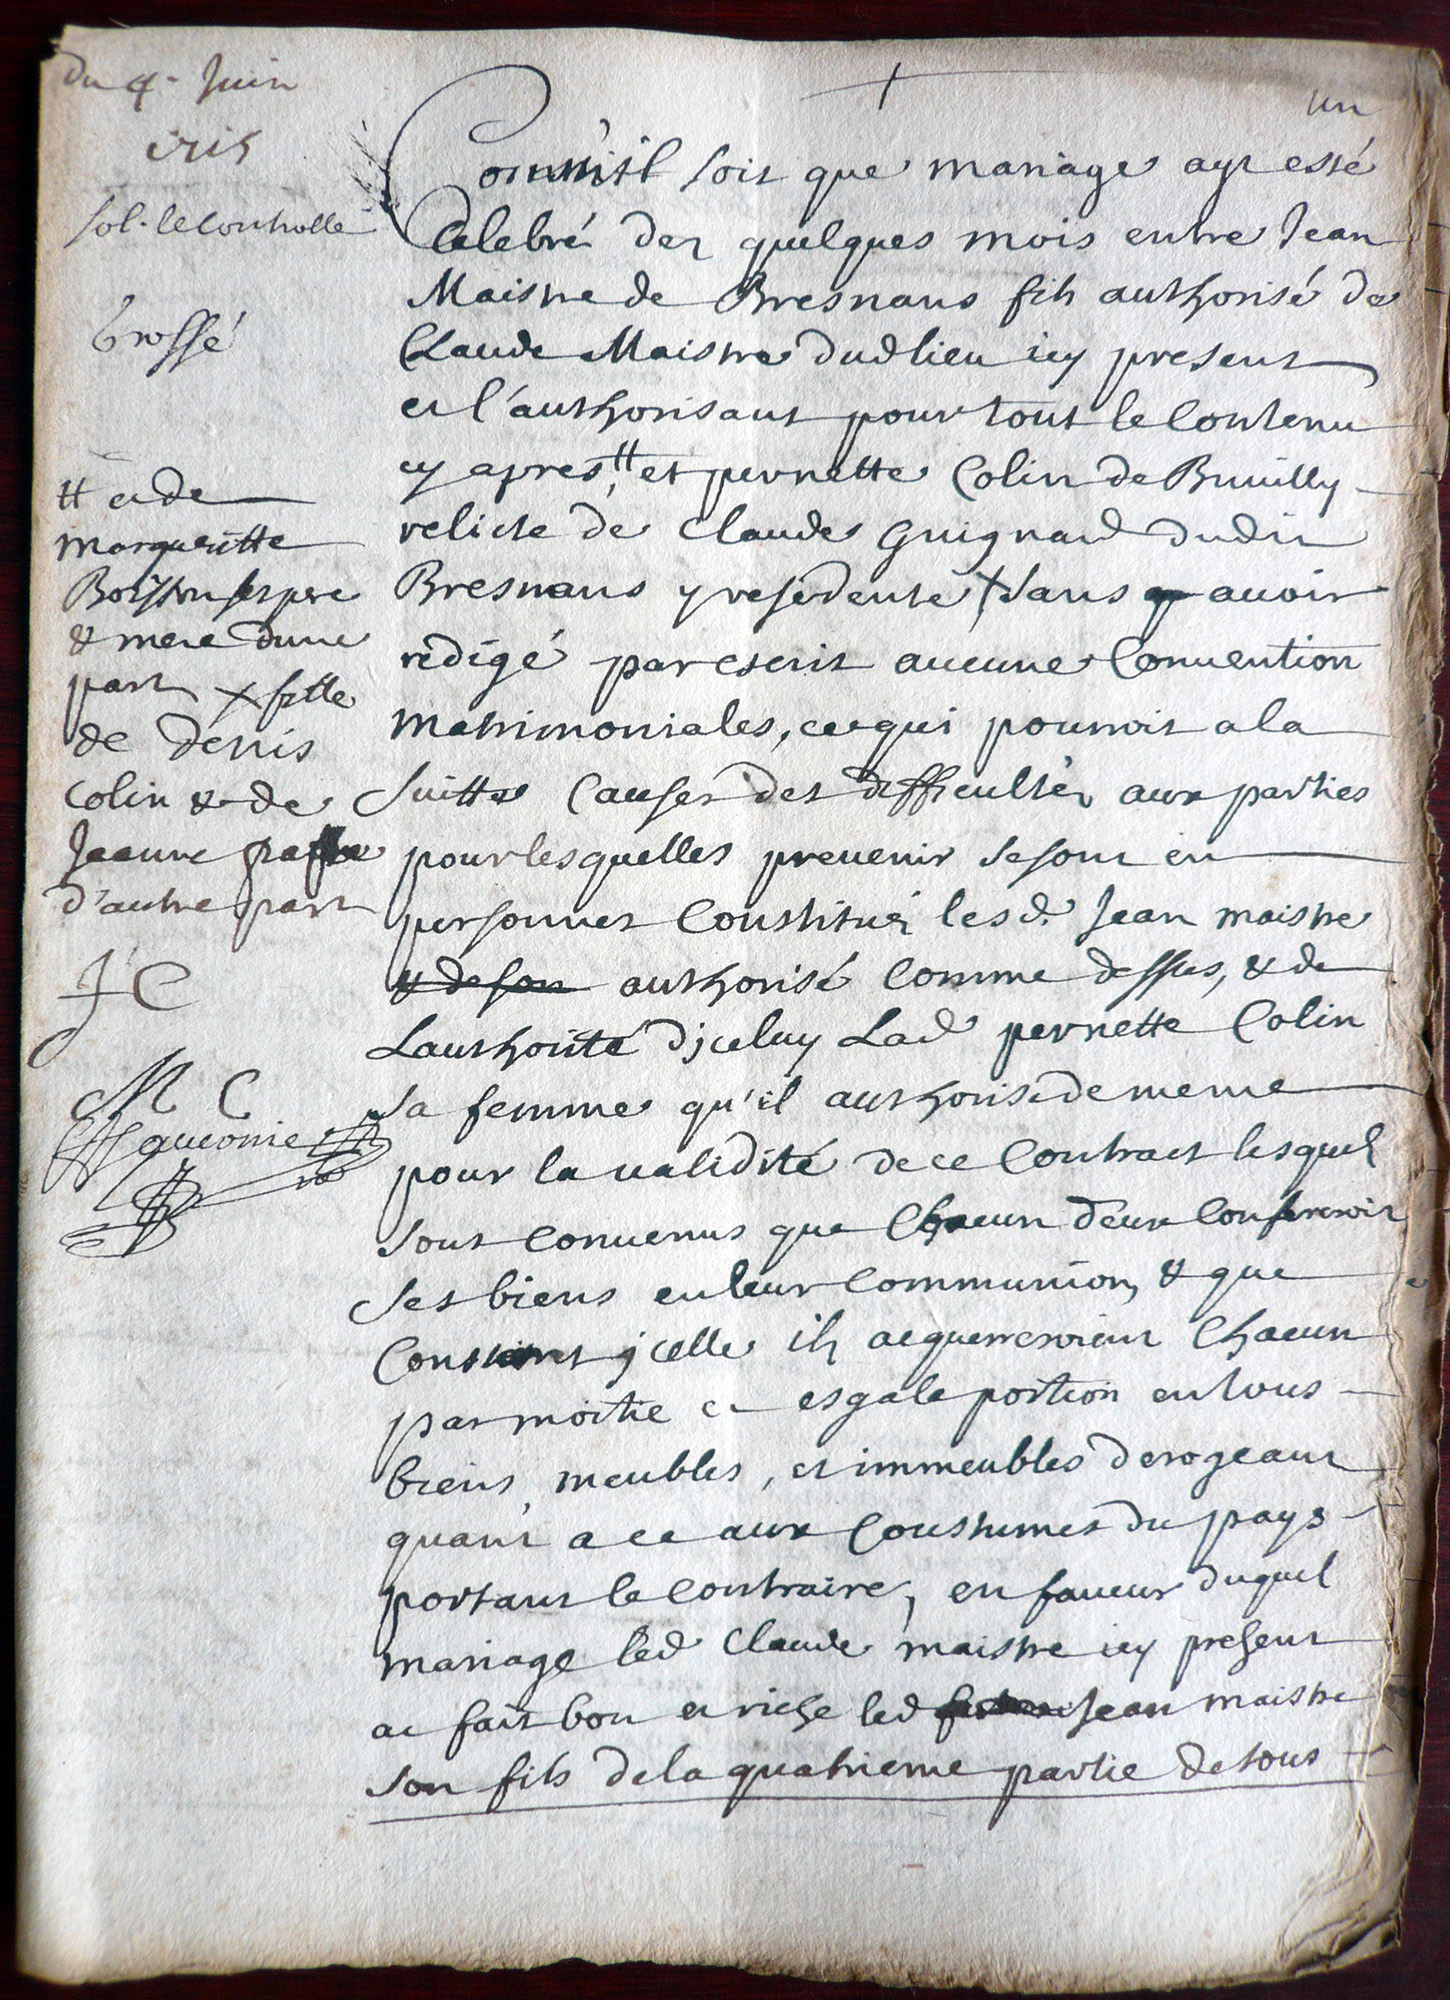 du 4e Juin
1715
sol. le controlle
Grossé
un
Comm'il soit que mariage ayt esté
Celebré dez quelques mois entre Jean
Maistre de Bresnans fils authorisé de
Claude Maistre dud lieu icy present
et l'authorisant pour tout le Contenu
cy apres, # et pernette Colin de Buuilly
relicte de Claude Guignard dudit
Bresnans y residente X sans auoir
rédigé par escrit aucune Conuention
matrimoniales, ce qui pourroit a la
suitte Causer des difficultéz aux parties
pour lesquelles preuenir se sont en
personnes Constitués les d. Jean maistre
& de son authorisé Comme dessus, & de
Lauthorité d'jceluy Lad pernette Colin
sa femme qu'il authorise de meme
pour la validité de ce Contract lesquels
sont Conuenus que Chacun deux Confereroit
ses biens en leur Communion, & que
Constant jcelle ils acquerreroient Chacun
par moitie et esgale portion en tous
biens, meubles, et immeubles derogeant
quant a ce aux Coustumes du pays
portant le Contraire, en faueur duquel
mariage led Claude maistre icy present
at fait bon et riche led Jean maistre
son fils de la quatrieme partie de tous
# et de
margueritte
Boisson ses pere
& mere dune
part X fille
de denis
Colin & de
Jeanne
d'autre part
J C
M C